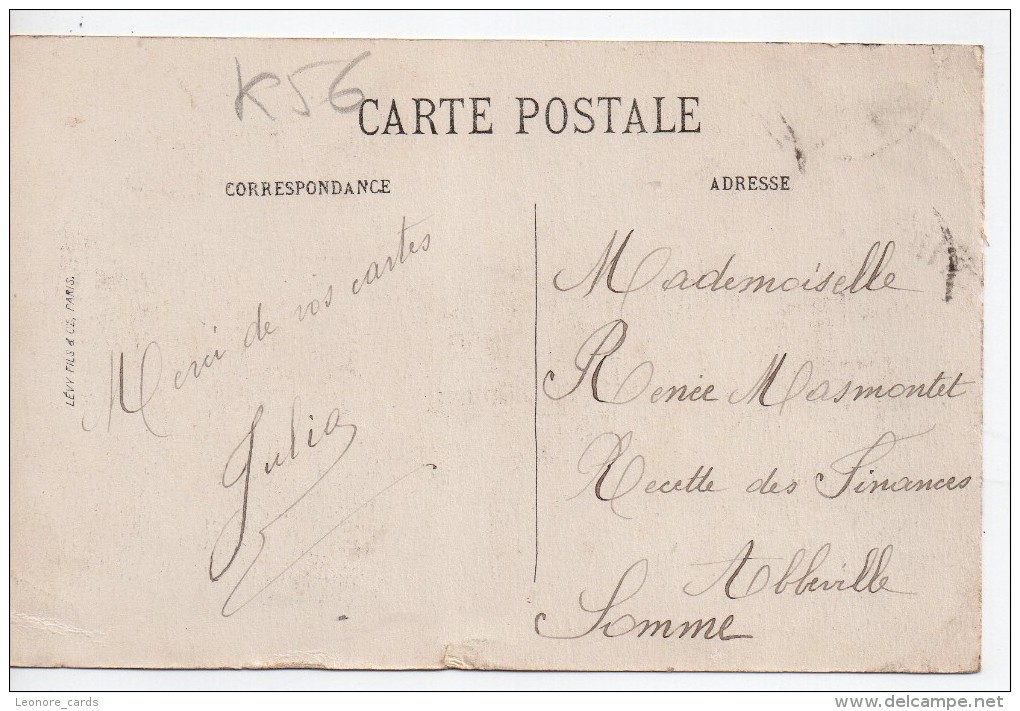 K56
CARTE POSTALE
CORRESPONDANCE
ADRESSE
LÉVY FILS & CIE, PARIS.
Merci de vos cartes
Julia
Mademoiselle
Renée Masmontet
Recette des Finances
Abbeville
Somme
Leonore_cards
www.delcampe.net